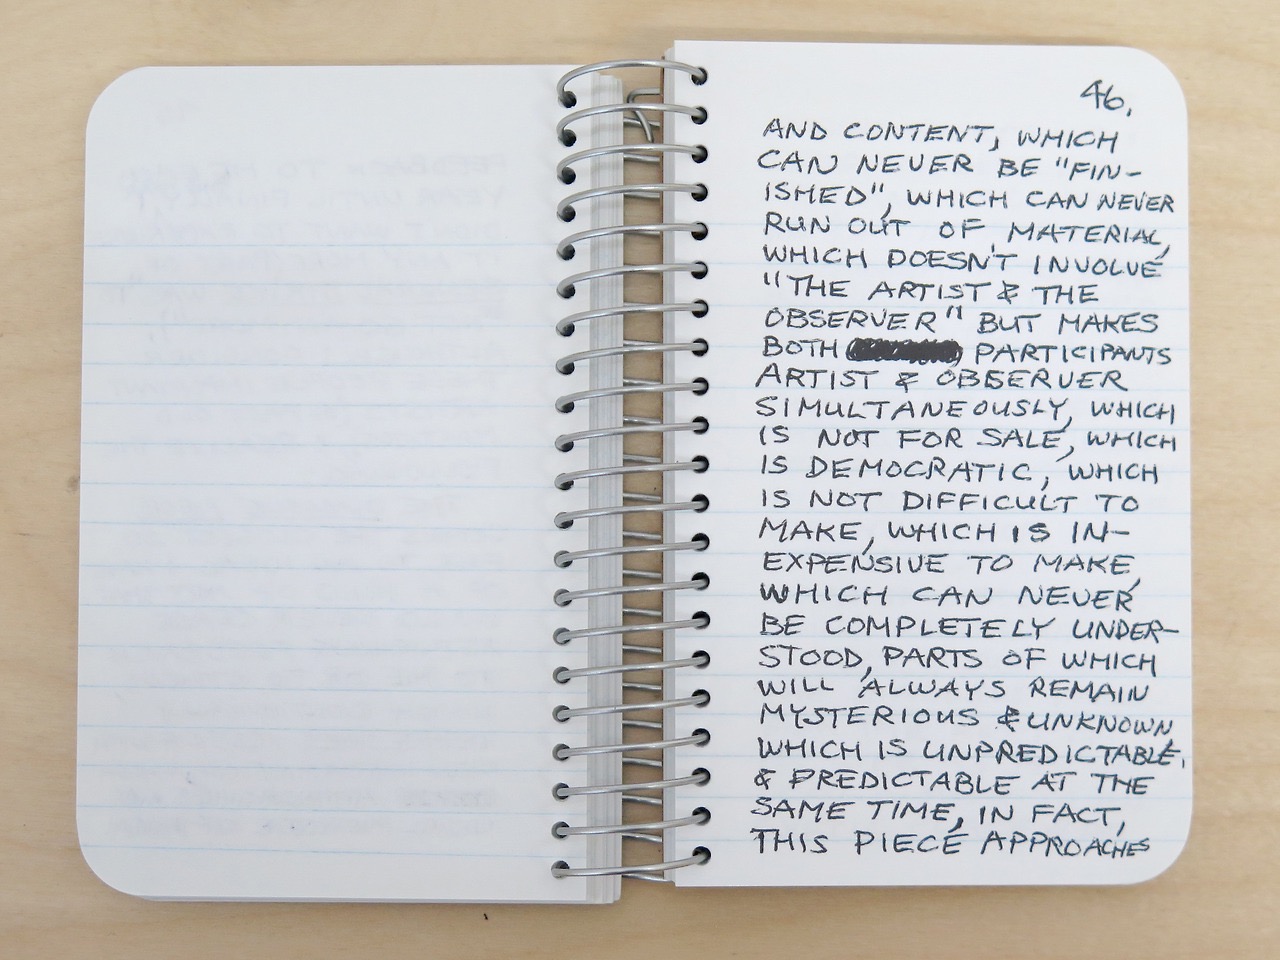 46.
AND CONTENT, WHICH
CAN NEVER BE "FIN-
ISHED", WHICH CAN NEVER
RUN OUT OF MATERIAL,
WHICH DOESN'T INVOLVE
"THE ARTIST & THE
OBSERVER" BUT MAKES
BOTH PARTICIPANTS
ARTIST & OBSERVER
SIMULTANEOUSLY, WHICH
IS NOT FOR SALE, WHICH
IS DEMOCRATIC, WHICH
IS NOT DIFFICULT TO
MAKE, WHICH IS IN-
EXPENSIVE TO MAKE,
WHICH CAN NEVER
BE COMPLETELY UNDER-
STOOD, PARTS OF WHICH
WILL ALWAYS REMAIN
MYSTERIOUS & UNKNOWN,
WHICH IS UNPREDICTABLE,
& PREDICTABLE AT THE
SAME TIME, IN FACT,
THIS PIECE APPROACHES